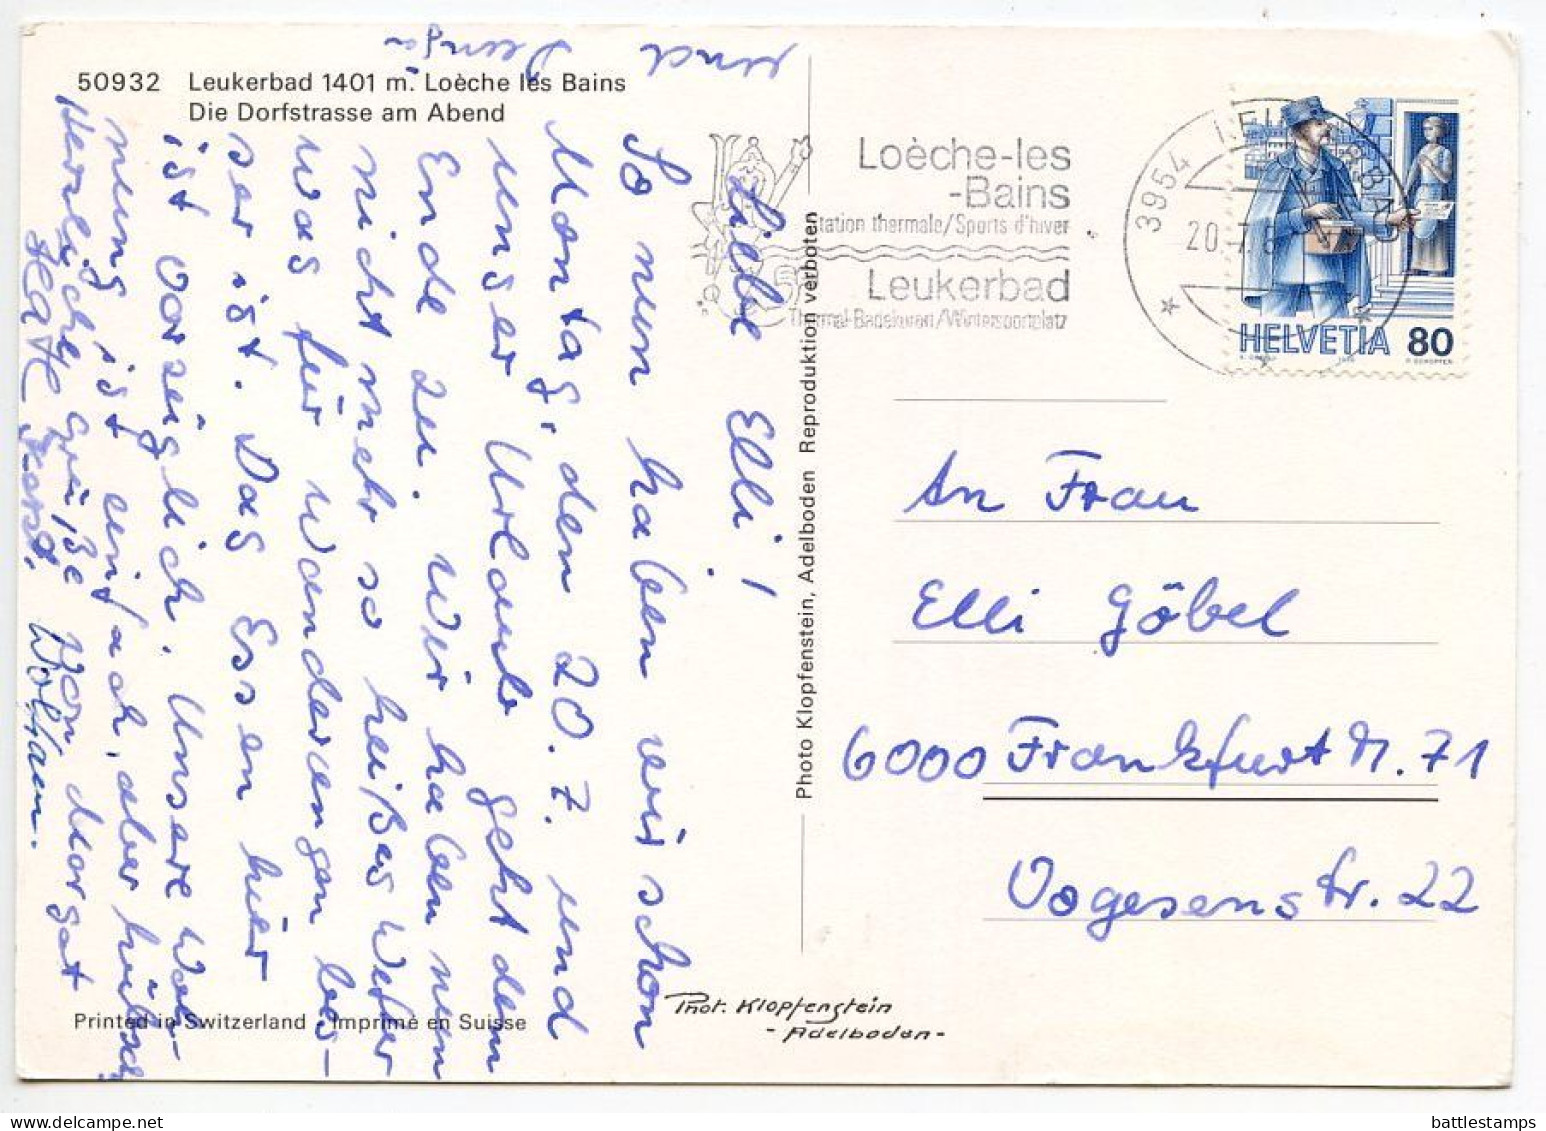 50932 Leukerbad 1401 m. Loèche les Bains
Die Dorfstrasse am Abend
Liebe Elli!
So nun haben wir schon
Montag, den 20.7. und
unser Urlaub geht dem
Ende zu. Wir haben nun
nicht mehr so heißes Wetter
was für Wanderungen bes-
ser ist. Das Essen hier
ist vorzüglich. Unsere Woh-
nung ist einfach, aber hübsch
Herzliche Grüße von Margot
Beate Wolfram.
und
Loèche-les
-Bains
Station thermale/Sports d'hiver
Leukerbad
Thermal-Badekuren/Wintersportplatz
3954 LEUKERBAD
20.7.8
HELVETIA 80
Photo Klopfenstein, Adelboden Reproduktion verboten
An Frau
Elli Göbel
6000 Frankfurt M. 71
Vogesenstr. 22
Phot. Klopfenstein
- Adelboden -
Printed in Switzerland - Imprimé en Suisse
battlestamps